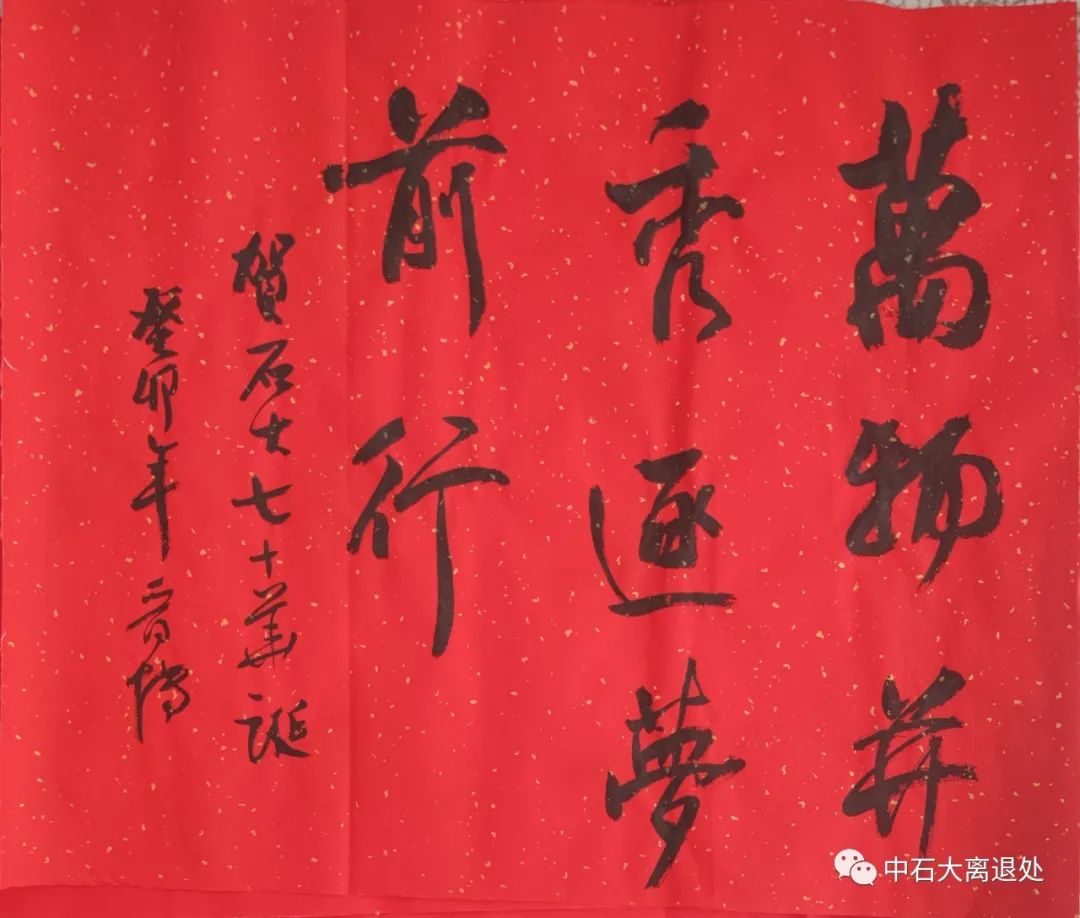 萬物並
秀逐夢
前行
賀石大七十華誕
癸卯年
中石大离退处